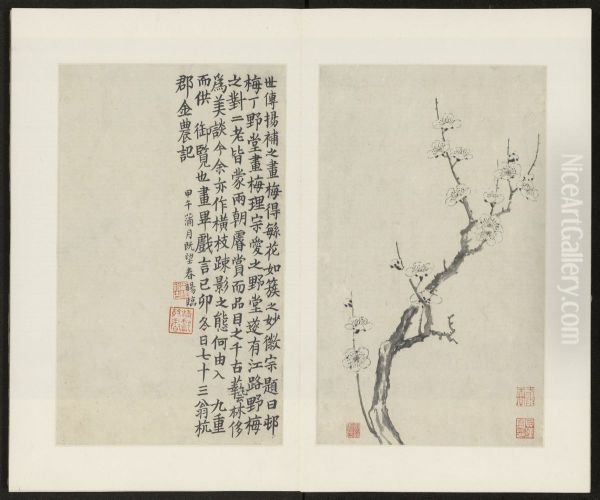 世傳揚補之畫梅得緐花如簇之妙徽宗題曰邨
梅丁野堂畫梅理宗愛之野堂遂有江路野梅
之對二老皆蒙兩朝睿賞而品目之千古藝林侈
爲美談今余亦作橫枝疎影之態何由入 九重
而供 御覽也畫畢戲言己卯冬日七十三翁杭
郡金農記
甲午蒲月既望春暘臨
NiceArtGallery.com